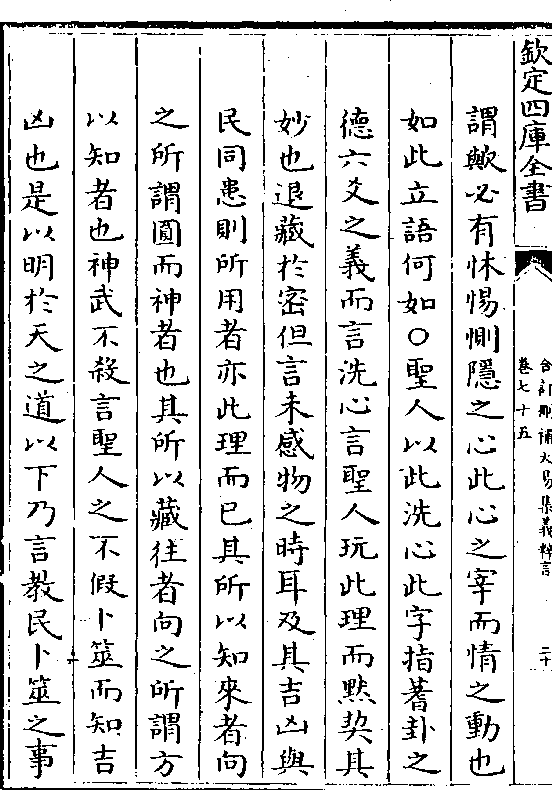 欽定四庫全書
合訂刪補大易集義粹言
卷七十五
二十
謂歟必有怵惕惻隱之心此心之宰而情之動也
如此立語何如○聖人以此洗心此字指蓍卦之
德六爻之義而言洗心言聖人玩此理而黙契其
妙也退藏於密但言未感物之時耳及其吉凶與
民同患則所用者亦此理而已其所以知來者向
之所謂圓而神者也其所以藏往者向之所謂方
以知者也神武不殺言聖人之不假卜筮而知吉
凶也是以明於天之道以下乃言教民卜筮之事